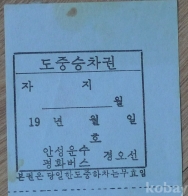 도중승차권
자 지
월
19 년 월 일
호
안성운수 경오선
경화버스
본권은 당일한도중하차는무효임